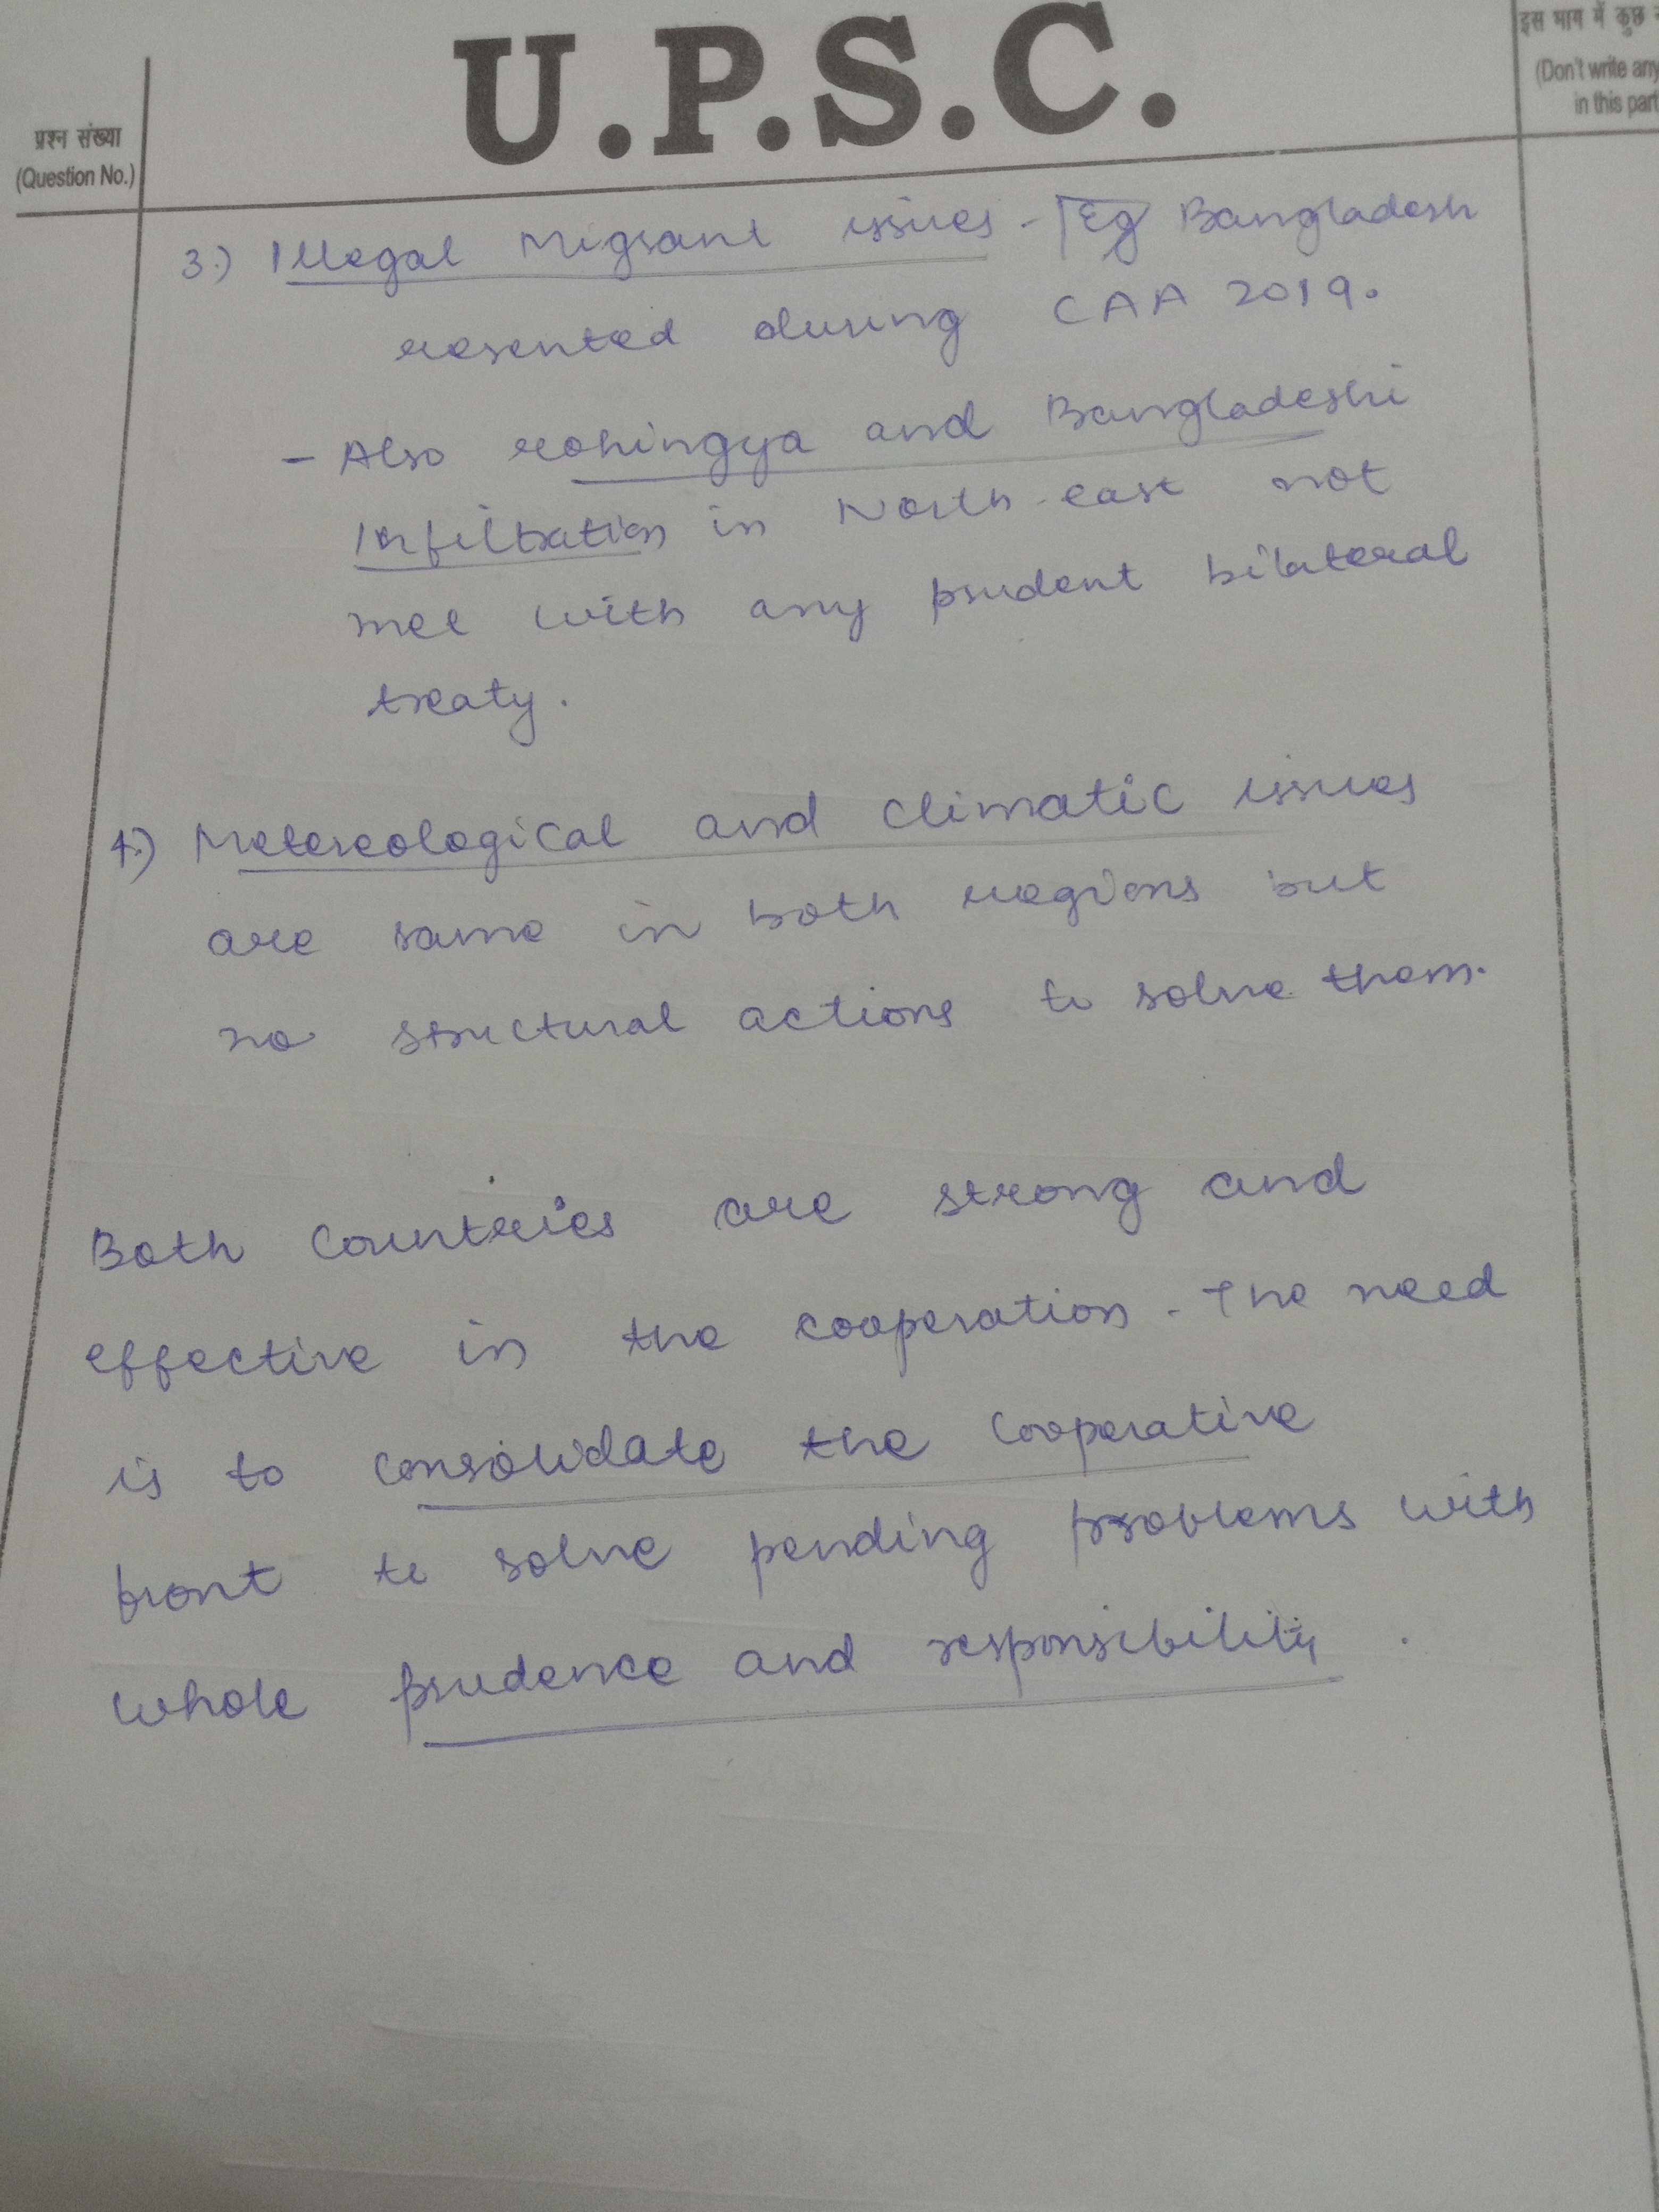 U.P.S.C.
इस भाग में कुछ
(Don't write any
in this part
प्रश्न संख्या
(Question No.)
3.) Illegal Migrant issues - Eg Bangladesh
resented during CAA 2019.
- Also rohingya and Bangladeshi
Infiltration in North-east not
met with any prudent bilateral
treaty.
4.) Metereological and climatic issues
are same in both regions but
no structural actions to solve them.
Both Countries are strong and
effective in the cooperation. The need
is to consolidate the cooperative
front to solve pending problems with
whole prudence and responsibility.